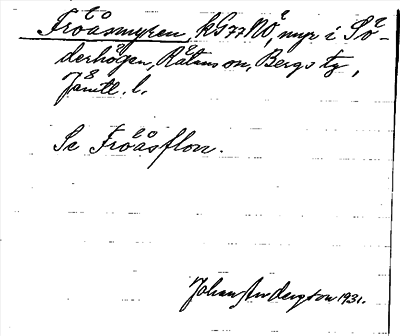 Fröåsmyren, kG77NÖ, myr i Sö-
derhögen, Rätans sn, Bergs tg,
Jämtl. l.
Se Fröåsflon.
Johan Anderson 1931.